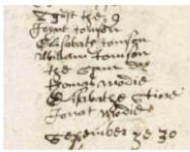 the 9
Jonat tomson
Elisabeth tomson
William tomson
the same day
Thomas modie
Elisabethe
Jonat Modie
September ye 30